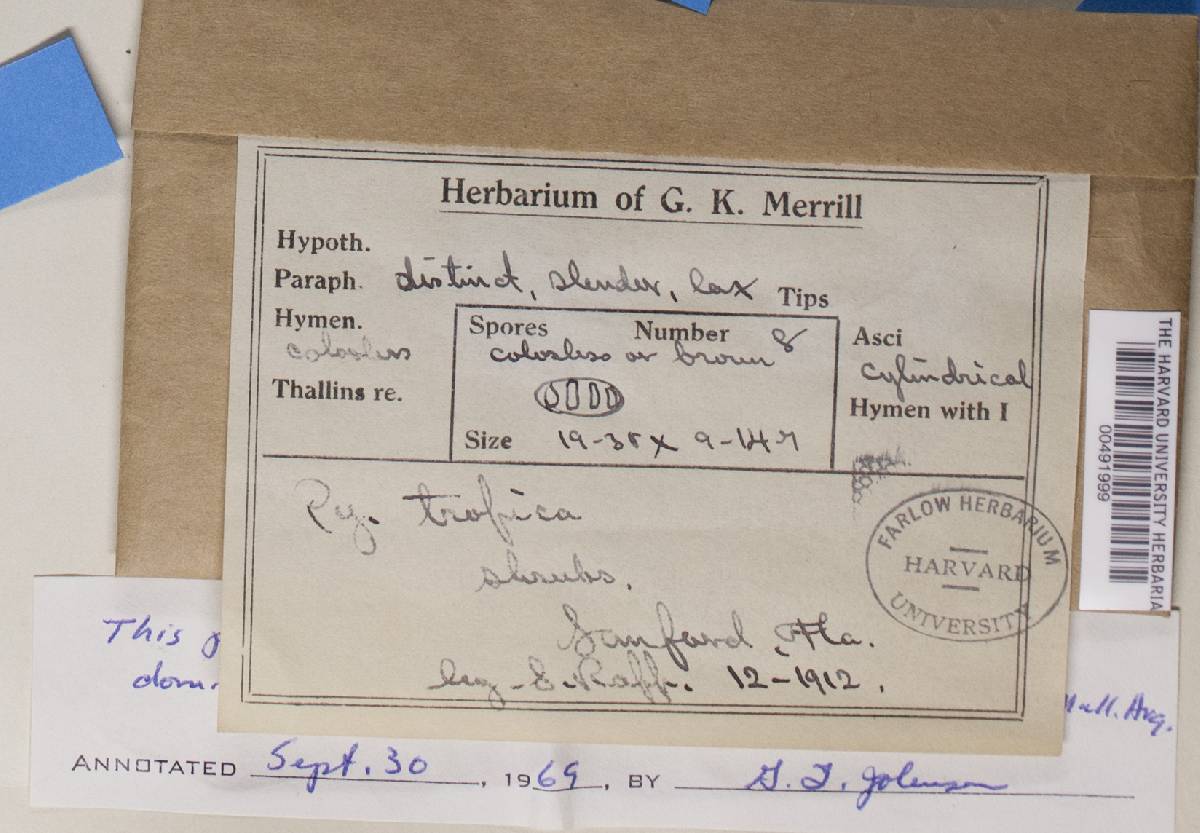 Herbarium of G. K. Merrill
Hypoth.
Paraph. distinct, slender, lax Tips
Hymen. colorless
Spores Number 8
colorless or brown
Asci cylindrical
Thallins re.
Hymen with I
Size 19-38 x 9-14
Py. tropica
shrubs.
Sanford, Fla.
leg. 12-1912.
FARLOW HERBARIUM
HARVARD
UNIVERSITY
THE HARVARD UNIVERSITY HERBARIA
00491999
This
Müll. Arg.
ANNOTATED Sept. 30, 1969, BY G. T. Johnson